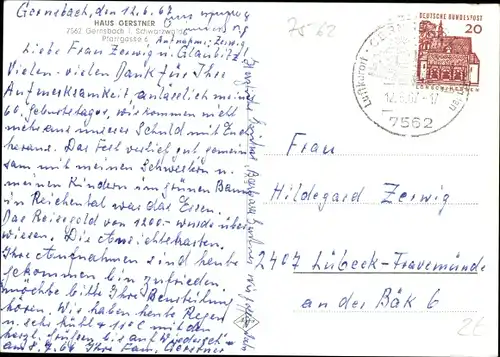 Gernsbach, den 12.6.67
HAUS GERSTNER
7562 Gernsbach i. Schwarzwald
Pfarrgasse 6
Liebe Frau Zerwig u. Glaubitz
Vielen-vielen Dank für Ihre
Aufmerksamkeit anlässlich meines
60. Geburtstages, wir kommen nicht
mehr aus unserer Schuld mit Ihnen
heraus. Das Fest verlief gut gemein
sam mit meinen Schwestern u.
meinen Kindern im grünen Baum
in Reichental war das Essen.
Das Reisegeld von 1200.- wurde über
wiesen. Die Ansichtskarten.
Ihre Aufnahmen sind heute
gekommen bin zufrieden.
möchte bitte Ihre Beurteilung
hören. Wir haben heute Regen
u. sehr kühl + 10°C mit den
herzl. Grüssen bis auf Wiederseh-
Ihre Fam. Gerstner
75-62
DEUTSCHE BUNDESPOST
20
12.6.67-17
7562
Luftkurort
Frau
Hildegard Zerwig
2407 Lübeck-Travemünde
an der Bäk 6
2€